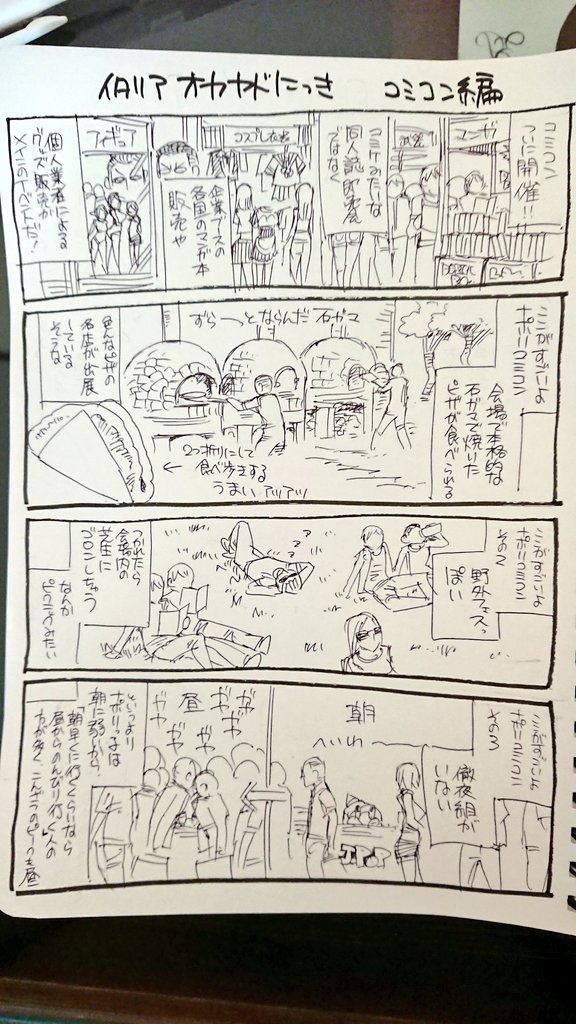 イタリア オカヤドにっき コミコン編
コミコン
ついに開催!!
マンガ
武器
コミケみたいな
同人誌即売会
ではなく
コスプレ衣装
企業ブースの
各国のマンガ本
販売や
フィギュア
個人業者による
グッズ販売が
メインのイベントだ!
ここがすごいよ
ナポリコミコン
会場で本格的な
石ガマで焼いた
ピザが食べられる
ずらーっとならんだ石ガマ
色んなピザの
名店が出展
している
そうな
2つ折りにして
← 食べ歩きする
うまい アツアツ
ここがすごいよ
ナポリコミコン
その2
野外フェスっ
ぽい
つかれたら
会場内の
芝生に
ゴロンしちゃう
なんか
ピクニックみたい
ここがすごいよ
ナポリコミコン
その3
徹夜組が
いない
朝
へいわ
昼
ガヤ
ガヤ
ガヤ
ガヤ
というより
ナポリっ子は
朝に弱いらしい
「朝早くに行くくらいなら
昼からのんびり行く」人の
方が多く、こんざつのピークも昼